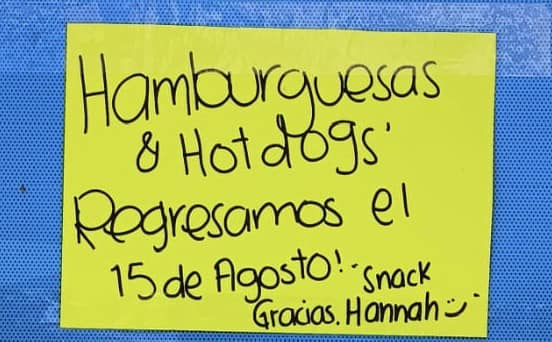 Hamburguesas
& Hot dogs'
Regresamos el
15 de Agosto! - Snack
Gracias. Hannah :)